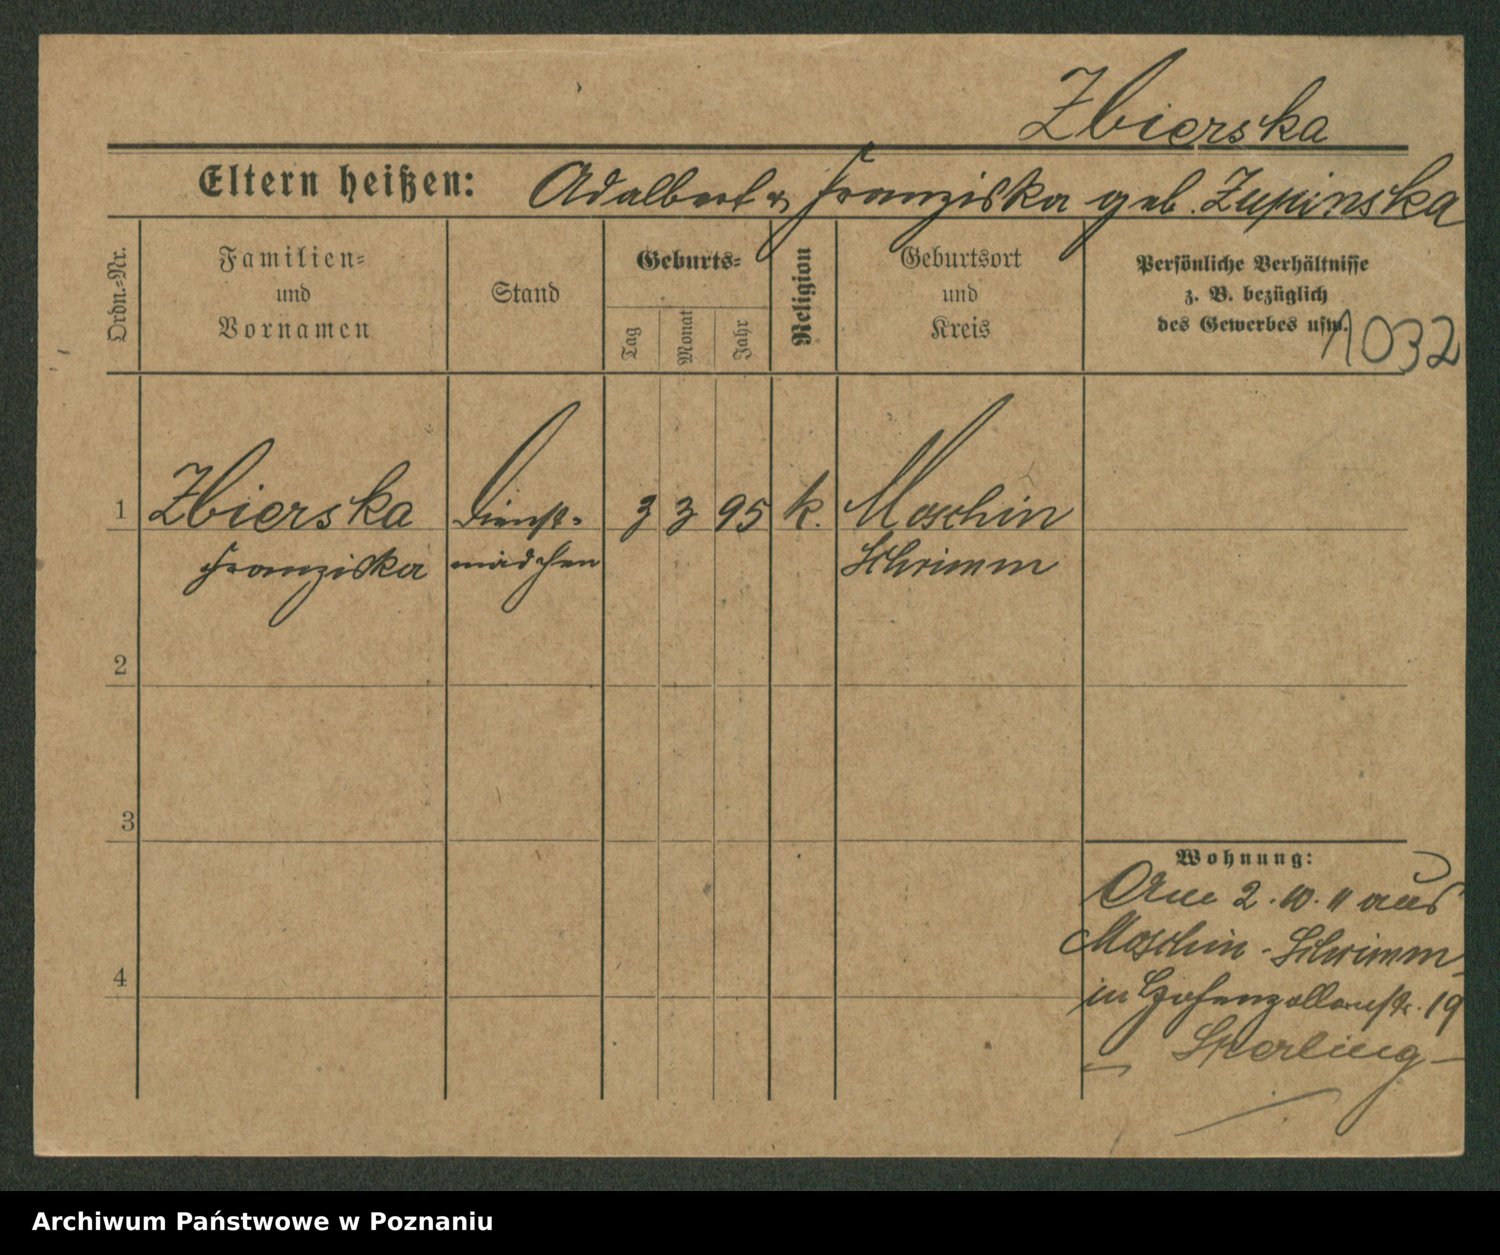 Zbierska
Eltern heißen: Adalbert & Franziska geb. Zupinska
Ordn.-Nr.
Familien-
und
Vornamen
Stand
Geburts-
Tag
Monat
Jahr
Religion
Geburtsort
und
Kreis
Persönliche Verhältnisse
z. B. bezüglich
des Gewerbes usw.
1032
1 Zbierska Dienst- 3 3 95 k. Moschin
Franziska mädchen Schrimm
2
3
4
Wohnung:
Am 2.10.11 aus
Moschin - Schrimm
in Hohenzollernstr. 19
Sperling
Archiwum Państwowe w Poznaniu